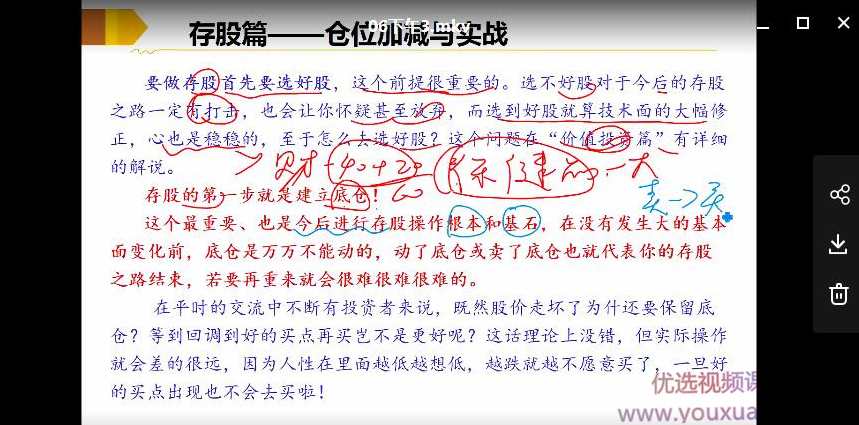 06下午3.mkv
存股篇——仓位加减与实战
要做存股首先要选好股，这个前提很重要的。选不好股对于今后的存股
之路一定有打击，也会让你怀疑甚至放弃，而选到好股就算技术面的大幅修
正，心也是稳稳的，至于怎么去选好股？这个问题在“价值投资篇”有详细
的解说。
存股的第一步就是建立底仓！
这个最重要、也是今后进行存股操作根本和基石，在没有发生大的基本
面变化前，底仓是万万不能动的，动了底仓或卖了底仓也就代表你的存股
之路结束，若要再重来就会很难很难很难的。
在平时的交流中不断有投资者来说，既然股价走坏了为什还要保留底
仓？等到回调到好的买点再买岂不是更好呢？这话理论上没错，但实际操作
就会差的很远，因为人性在里面越低越想低，越跌就越不愿意买了，一旦好
的买点出现也不会去买啦！
优选视频课
www.youxua